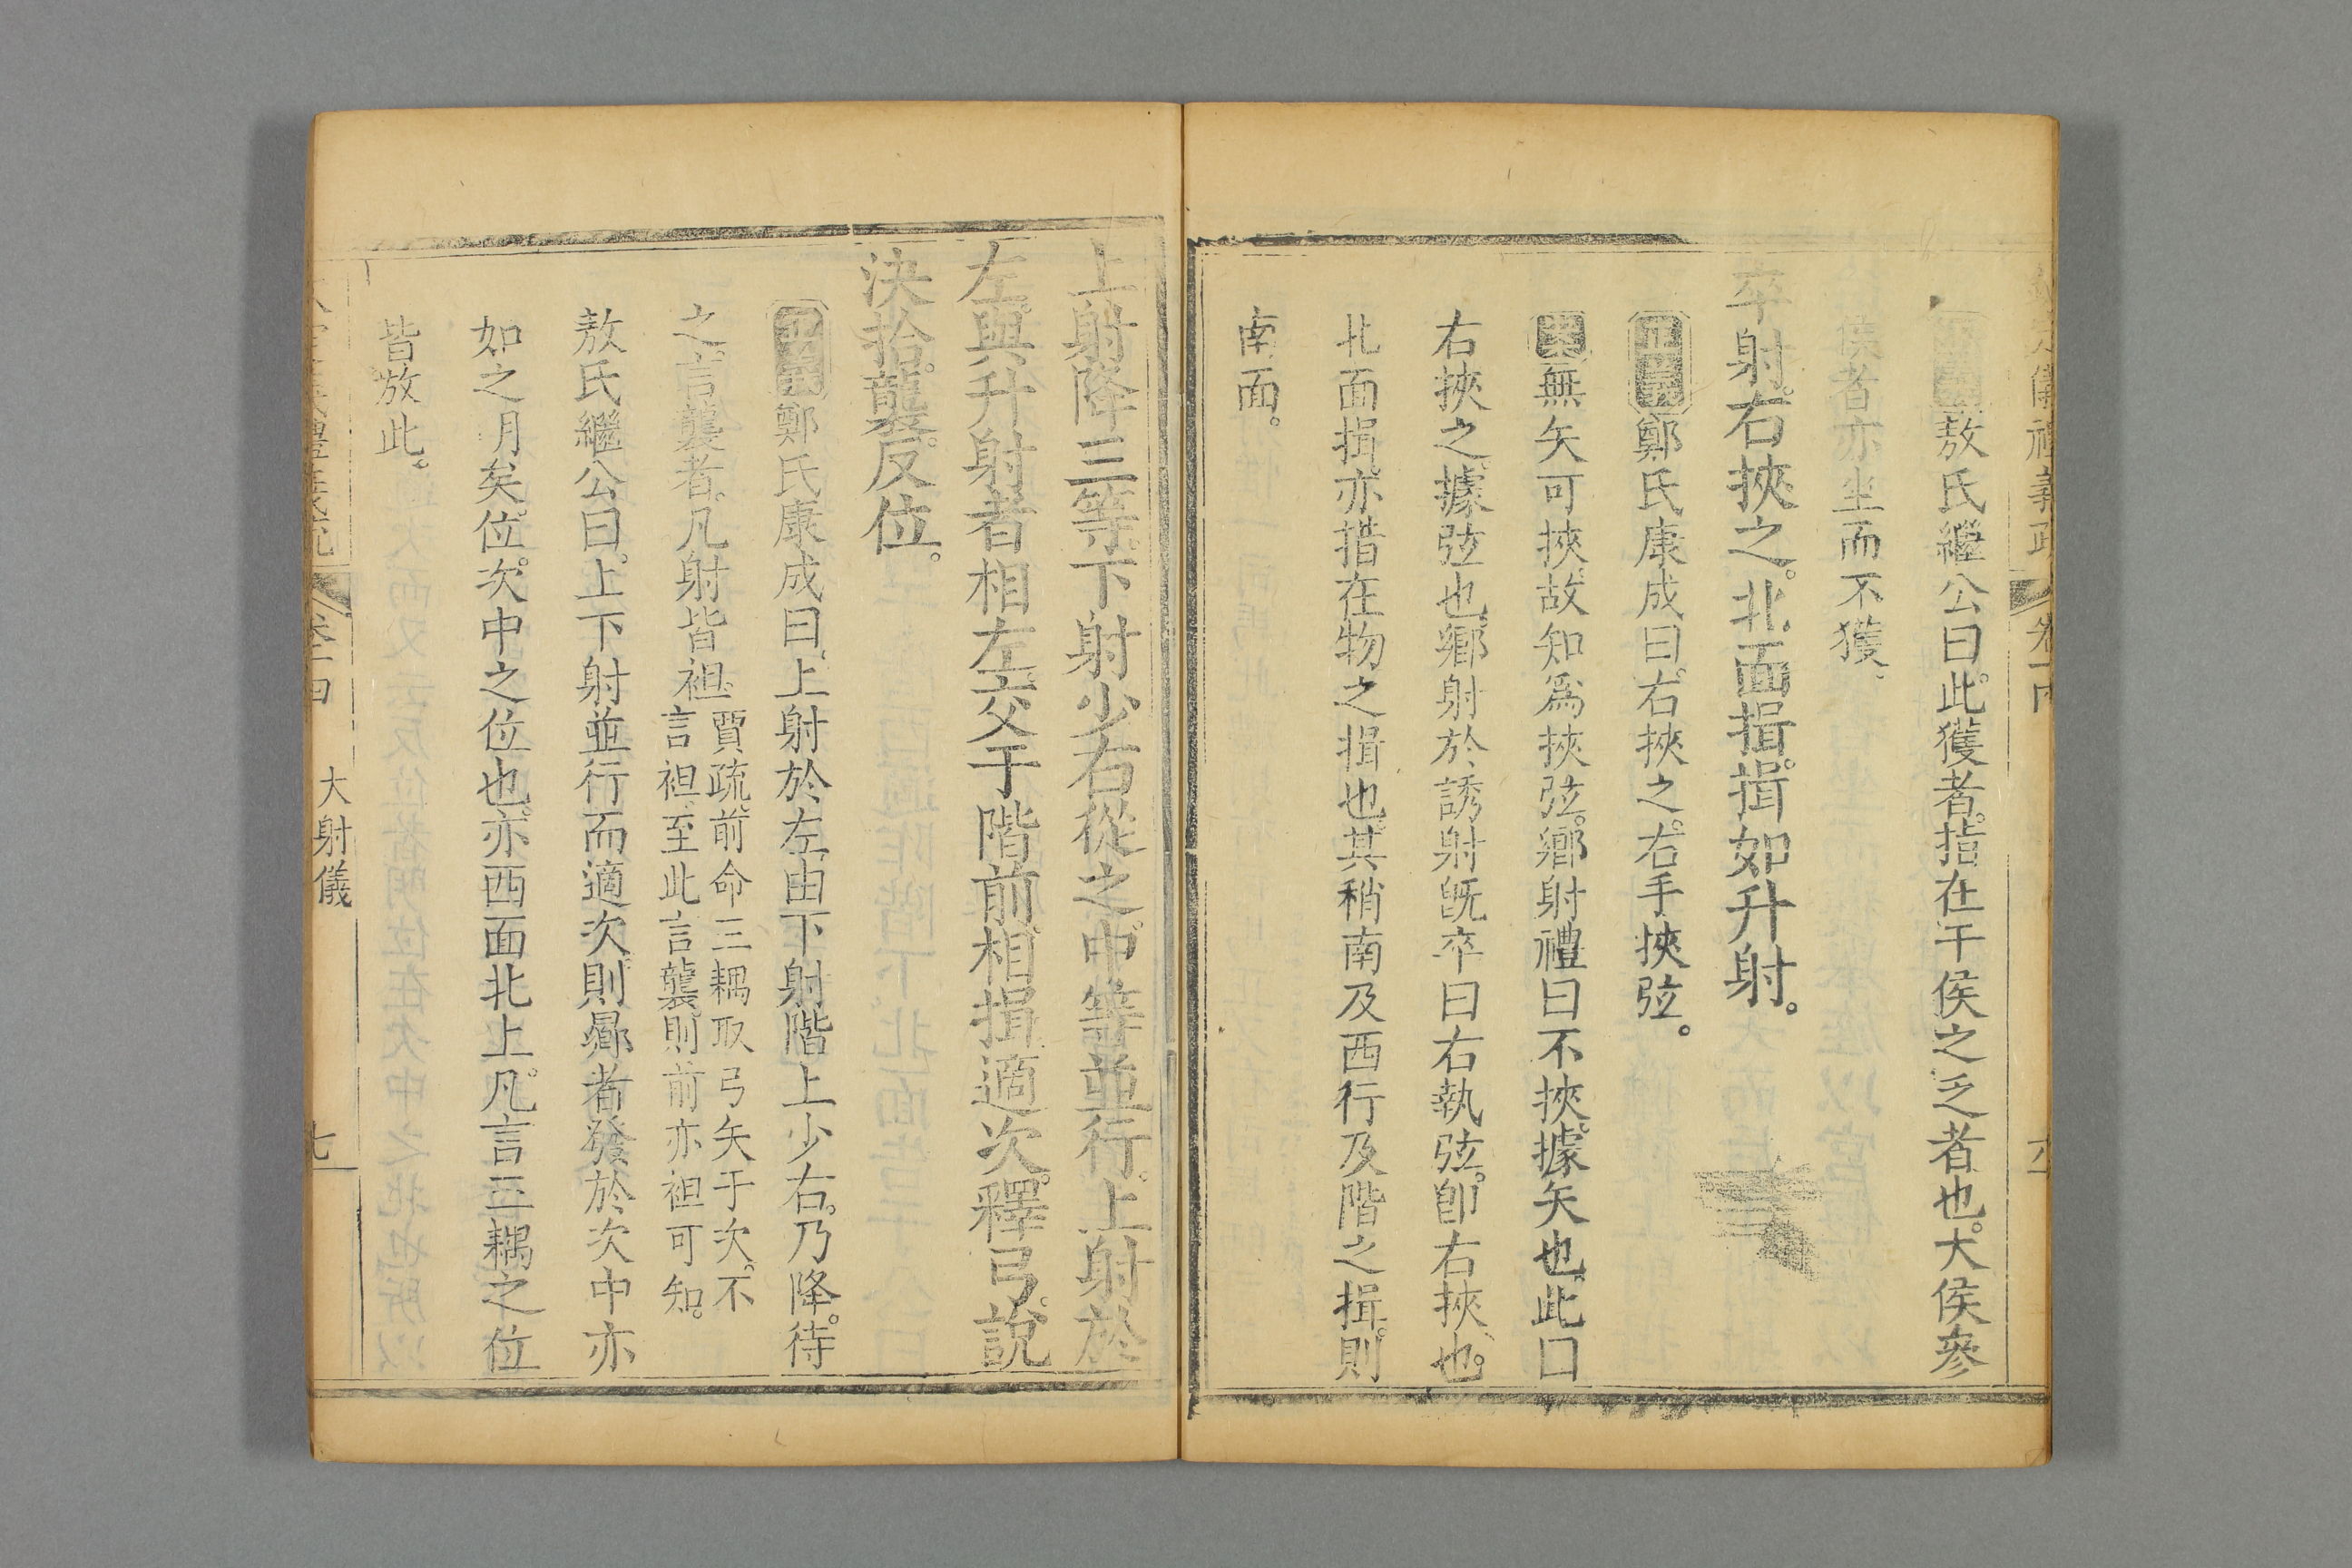 儀禮義疏 卷十四
敖氏繼公曰此獲者指在干侯之乏者也大侯參
侯者亦坐而不獲
卒射右挾之北面揖揖如升射
正義鄭氏康成曰右挾之右手挾弦
案無矢可挾故知爲挾弦鄉射禮曰不挾據矢也此囗
右挾之據弦也鄉射於誘射旣卒曰右執弦卽右挾也
北面揖亦揩在物之揖也其稍南及西行及階之揖則
南面
上射降三等下射少右從之中等並行上射於
左與升射者相左交于階前相揖適次釋弓說
決拾襲反位
正義鄭氏康成曰上射於左由下射階上少右乃降待
之言襲者凡射皆袒
賈疏前命三耦取弓矢于次不
言袒至此言襲則前亦袒可知
敖氏繼公曰上下射並行而適次則曏者發於次中亦
如之月矣位次中之位也亦西面北上凡言三耦之位
皆放此
大射儀 七